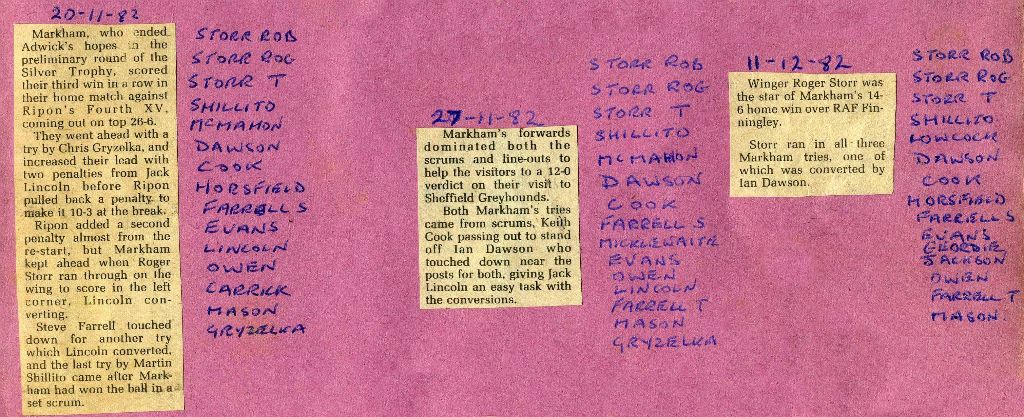 20-11-82
Markham, who ended
Adwick's hopes in the
preliminary round of the
Silver Trophy, scored
their third win in a row in
their home match against
Ripon's Fourth XV,
coming out on top 26-6.
They went ahead with a
try by Chris Gryzelka, and
increased their lead with
two penalties from Jack
Lincoln before Ripon
pulled back a penalty to
make it 10-3 at the break.
Ripon added a second
penalty almost from the
re-start, but Markham
kept ahead when Roger
Storr ran through on the
wing to score in the left
corner, Lincoln con-
verting.
Steve Farrell touched
down for another try
which Lincoln converted,
and the last try by Martin
Shillito came after Mark-
ham had won the ball in a
set scrum.
STORR ROB
STORR ROG
STORR T
SHILLITO
MCMAHON
DAWSON
COOK
HORSFIELD
FARRELL S
EVANS
LINCOLN
OWEN
CARRICK
MASON
GRYZELKA
27-11-82
Markham's forwards
dominated both the
scrums and line-outs to
help the visitors to a 12-0
verdict on their visit to
Sheffield Greyhounds.
Both Markham's tries
came from scrums, Keith
Cook passing out to stand
off Ian Dawson who
touched down near the
posts for both, giving Jack
Lincoln an easy task with
the conversions.
STORR ROB
STORR ROG
STORR T
SHILLITO
MCMAHON
DAWSON
COOK
FARRELL S
MICKLEWAITE
EVANS
OWEN
LINCOLN
FARRELL T
MASON
GRYZELKA
11-12-82
Winger Roger Storr was
the star of Markham's 14-
6 home win over RAF Fin-
ningley.
Storr ran in all three
Markham tries, one of
which was converted by
Ian Dawson.
STORR ROB
STORR ROG
STORR T
SHILLITO
LOWCOCK
DAWSON
COOK
HORSFIELD
FARRELL S
EVANS
GEORDIE
JACKSON
OWEN
FARRELL T
MASON.